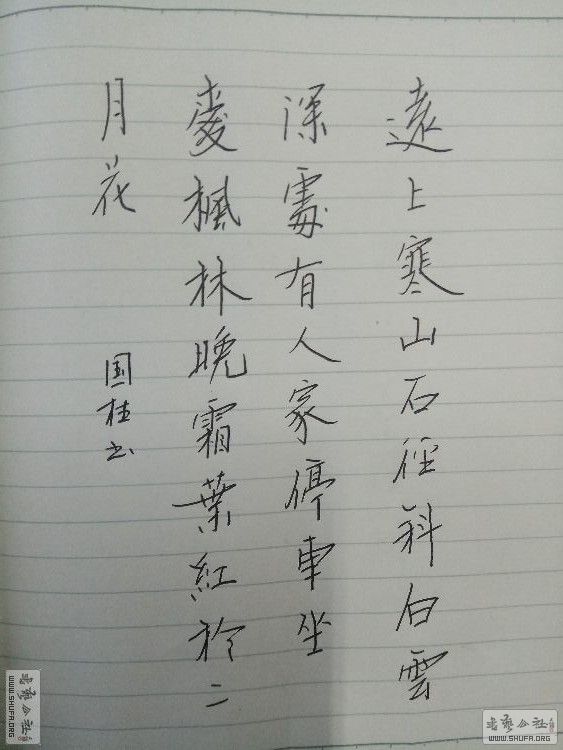 遠上寒山石徑斜白雲
深處有人家停車坐
愛楓林晚霜葉紅於二
月花
国桂书
书艺公社
WWW.SHUFA.ORG
书艺公社
WWW.SHUFA.ORG